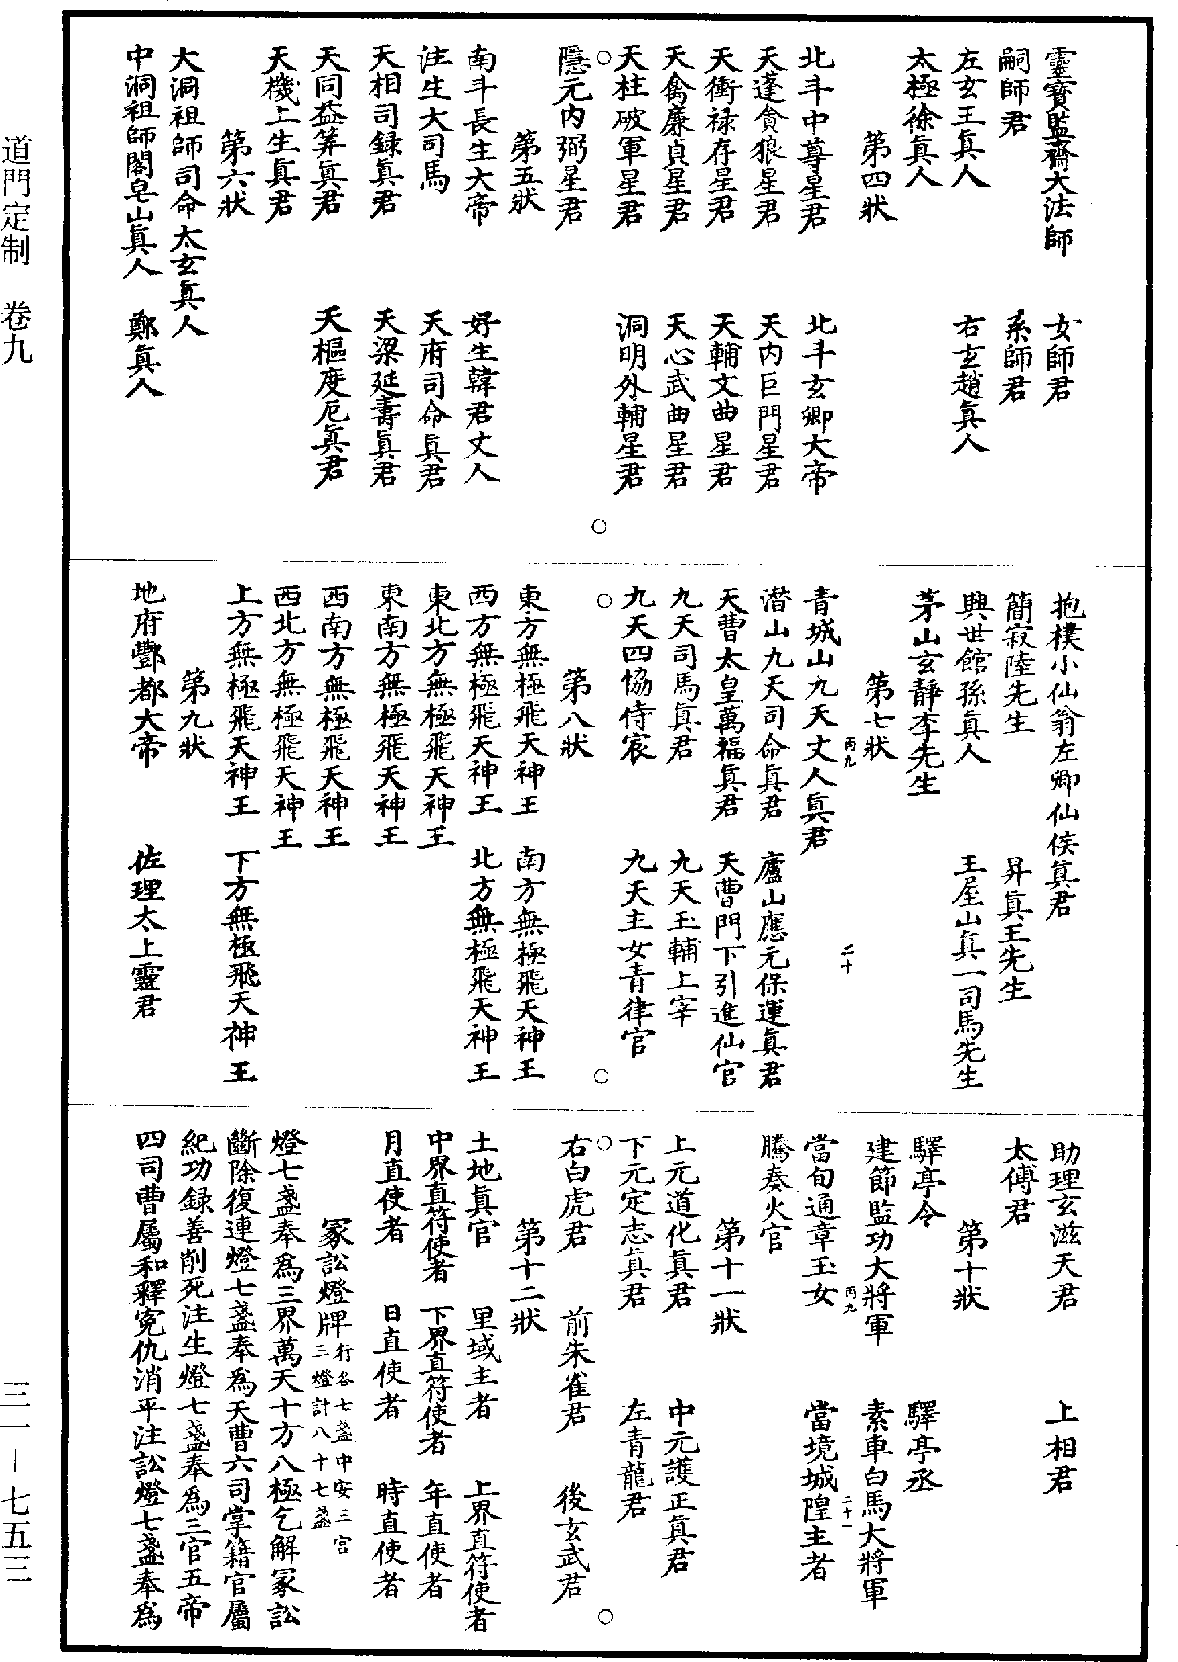 靈寶監齋大法師　女師君
嗣師君　系師君
左玄王眞人　右玄趙眞人
太極徐眞人
第四狀
北斗中尊星君　北斗玄卿大帝
天蓬貪狼星君　天内巨門星君
天衝禄存星君　天輔文曲星君
天禽廉貞星君　天心武曲星君
天柱破軍星君　洞明外輔星君
隱元内弼星君
第五狀
南斗長生大帝　好生韓君丈人
注生大司馬　天府司命眞君
天相司録眞君　天梁延壽眞君
天同益筭眞君　天樞度厄眞君
天機上生眞君
第六狀
大洞祖師司命太玄眞人
中洞祖師閤皂山眞人　鄭眞人
抱樸小仙翁左卿仙侯眞君
簡寂陸先生　昇眞王先生
興世館孫眞人　王屋山眞一司馬先生
茅山玄靜李先生
第七狀
丙九　二十
青城山九天丈人眞君
潜山九天司命眞君　廬山應元保運眞君
天曹太皇萬福眞君　天曹門下引進仙官
九天司馬眞君　九天玉輔上宰
九天四協侍宸　九天主女青律官
第八狀
東方無極飛天神王　南方無極飛天神王
西方無極飛天神王　北方無極飛天神王
東北方無極飛天神王
東南方無極飛天神王
西南方無極飛天神王
西北方無極飛天神王
上方無極飛天神王　下方無極飛天神王
第九狀
地府酆都大帝　佐理太上靈君
助理玄滋天君　上相君
太傅君
第十狀
驛亭令　驛亭丞
建節監功大將軍　素車白馬大將軍
丙九　二十一
當旬通章玉女　當境城隍主者
騰奏火官
第十一狀
上元道化眞君　中元護正眞君
下元定志眞君　左青龍君
右白虎君　前朱雀君　後玄武君
第十二狀
土地眞官　里域主者　上界直符使者
中界直符使者　下界直符使者　年直使者
月直使者　日直使者　時直使者
冢訟燈牌行各七盞中安三官三燈計八十七盞
燈七盞奉爲三界萬天十方八極乞解冢訟
斷除復連燈七盞奉爲天曹六司掌籍官屬
紀功録善削死注生燈七盞奉爲三官五帝
四司曹屬和釋寃仇消平注訟燈七盞奉爲
道門定制　卷九
三一－七五三